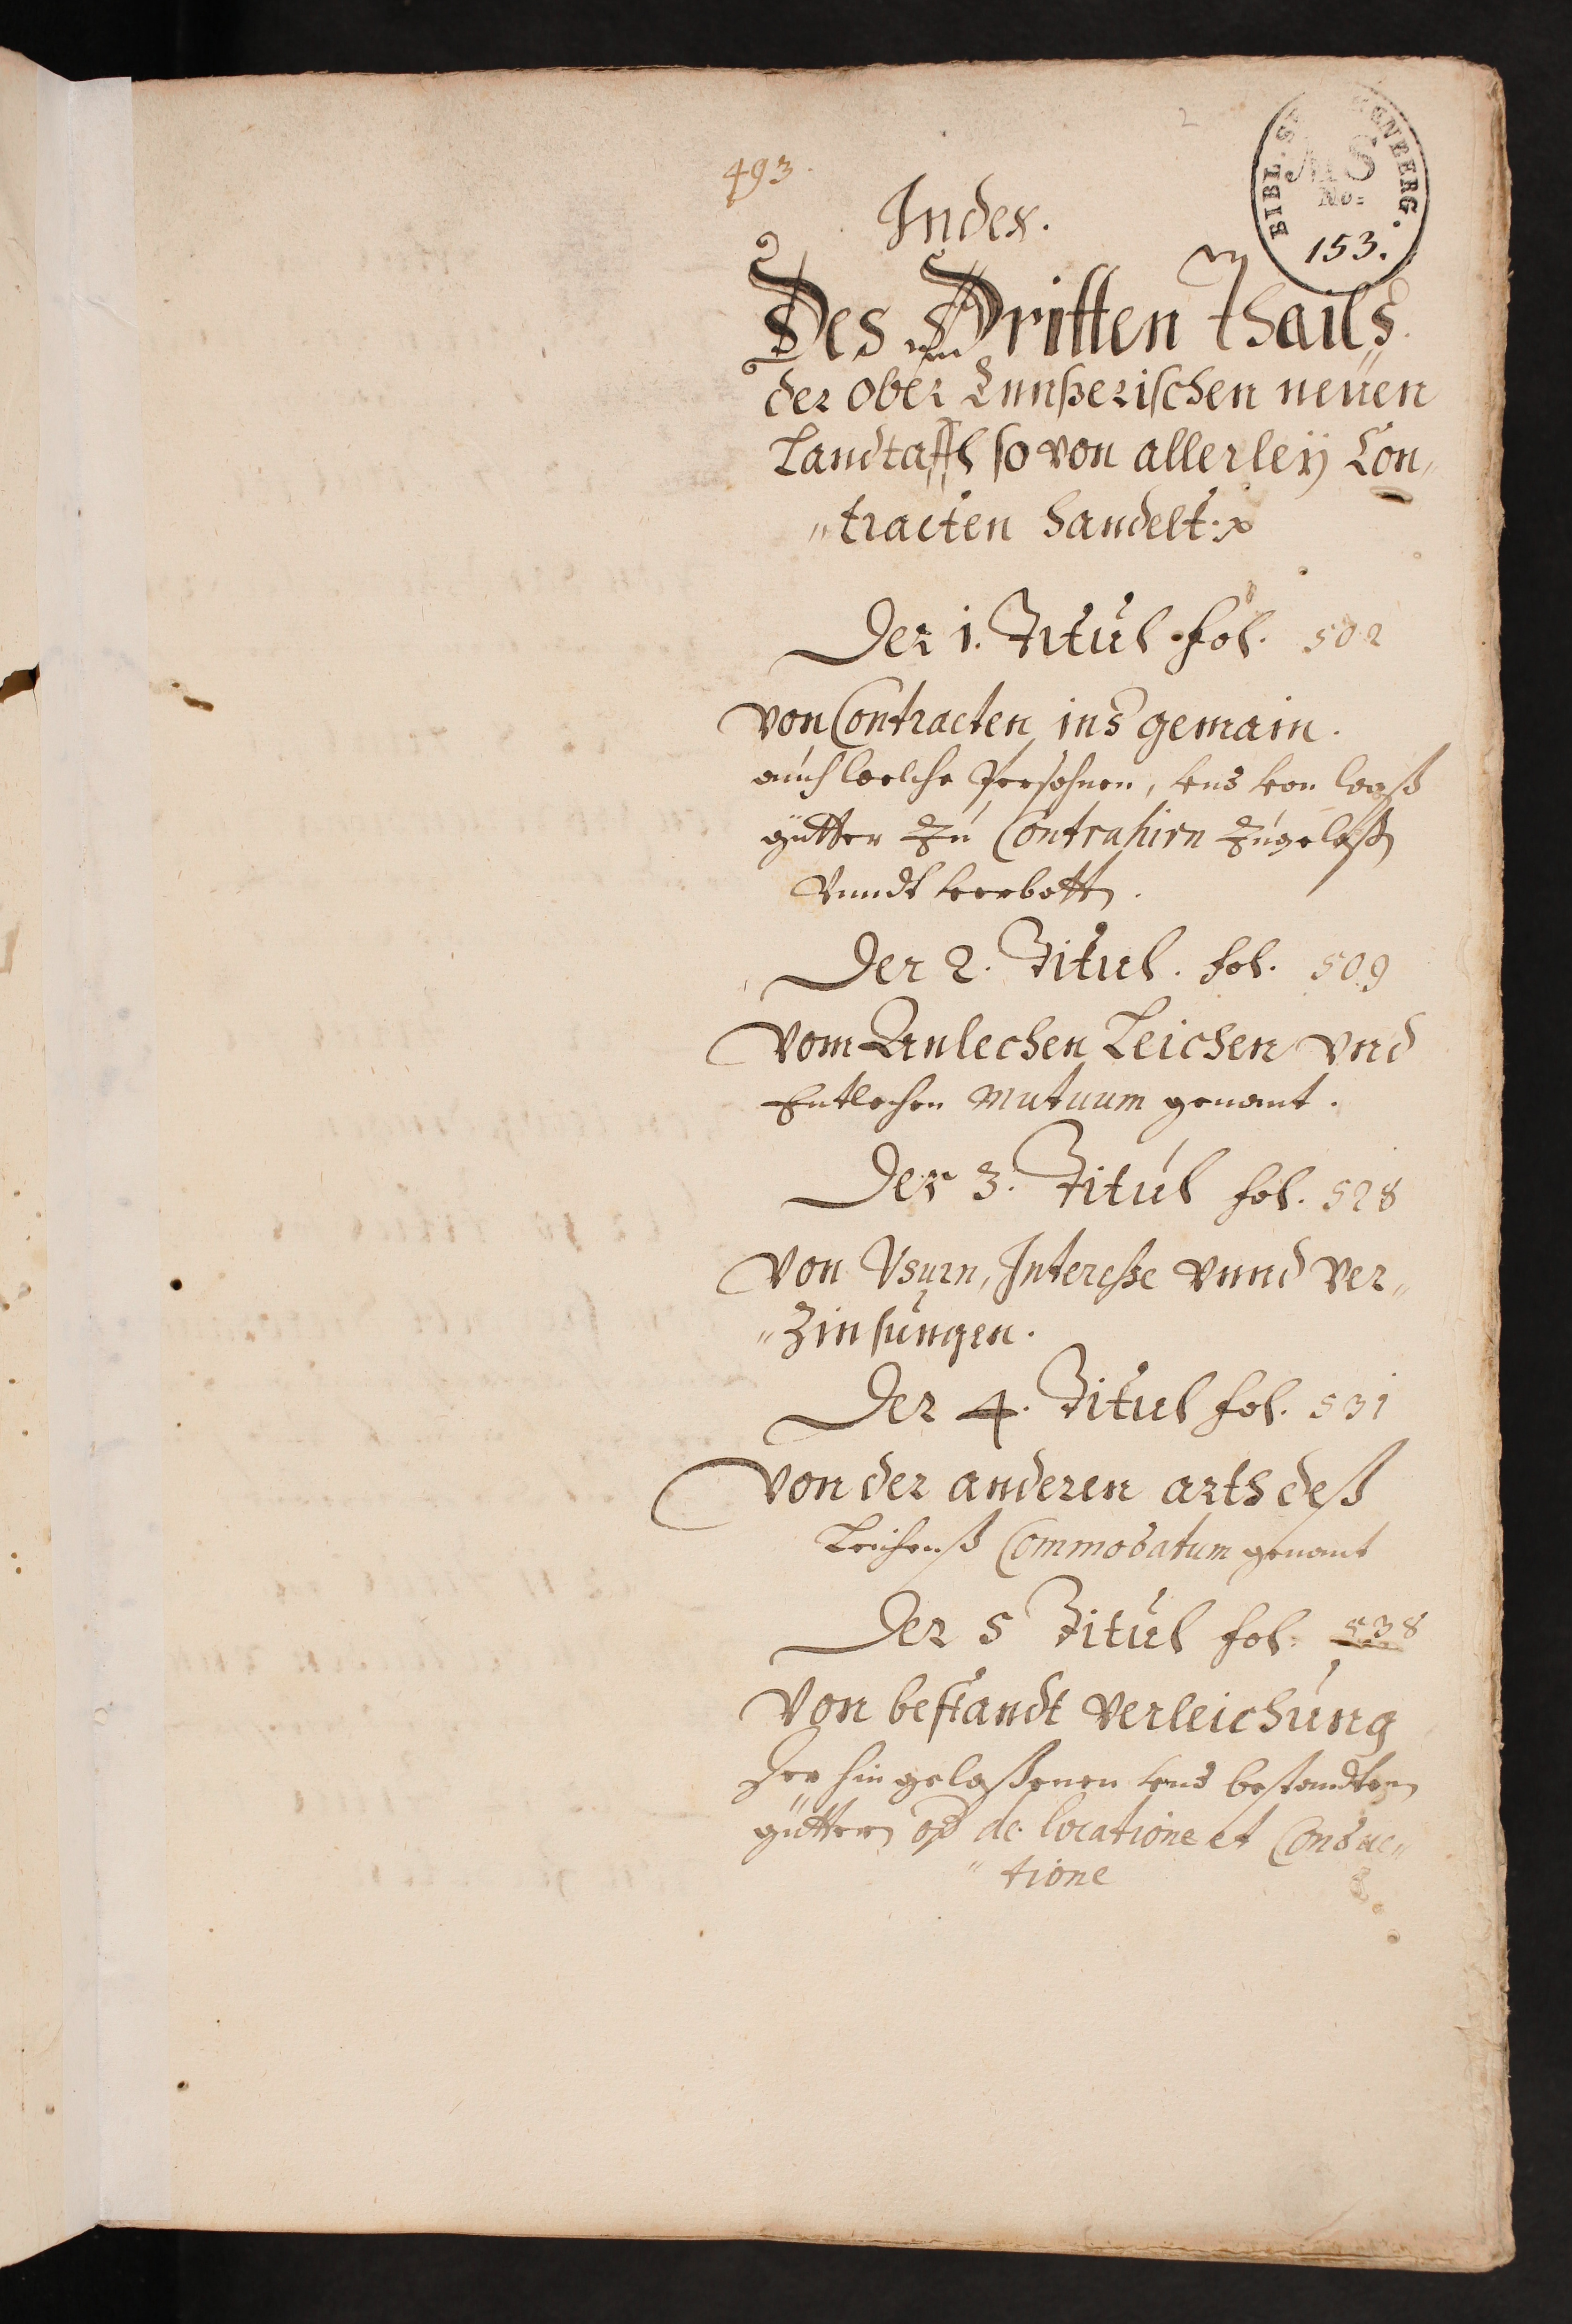 2
493.
BIBL. ST ENBERG.
MS
No:
153.
Index.
Des Dritten thails
der ober Ennßerischen neuen
Landtaffl so von allerley Con„
„tracten handelt:
Der 1. Titul fol. 502
von Contracten ins gemain.
auch welche Persohnen, vnd von waß
gütter zu Contrahirn zugelaßen
vnndt verbotten.
Der 2. Titul. fol. 509
vom Anlechen Leichen vnd
Entlechen Mutuum genant.
Der 3. Titul fol. 528
von Vsurn, Interesse vnnd ver„
„Zinsungen.
Der 4. Titul fol. 531
von der anderen arth deß
Leichenß Commodatum genant
Der 5 Titul fol. 538
von bestandt verleichung
der hingelaßenen vnd bestandten
güttern de locatione et Conduc„
„tione